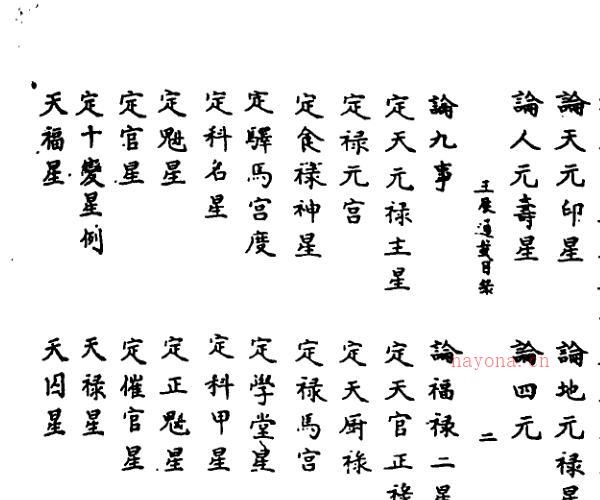 論天元印星　論地元禄星
論人元壽星　論四元
三辰通載目録　二
論九事　論福禄二星
定天元禄主星　定天官正禄
定禄元宫　定天厨禄
定食禄神星　定禄馬宫
定驛馬宫度　定學堂星
定科名星　定科甲星
定魁星　定正魁星
定官星　定催官星
定十變星例　天禄星
天福星　天囚星